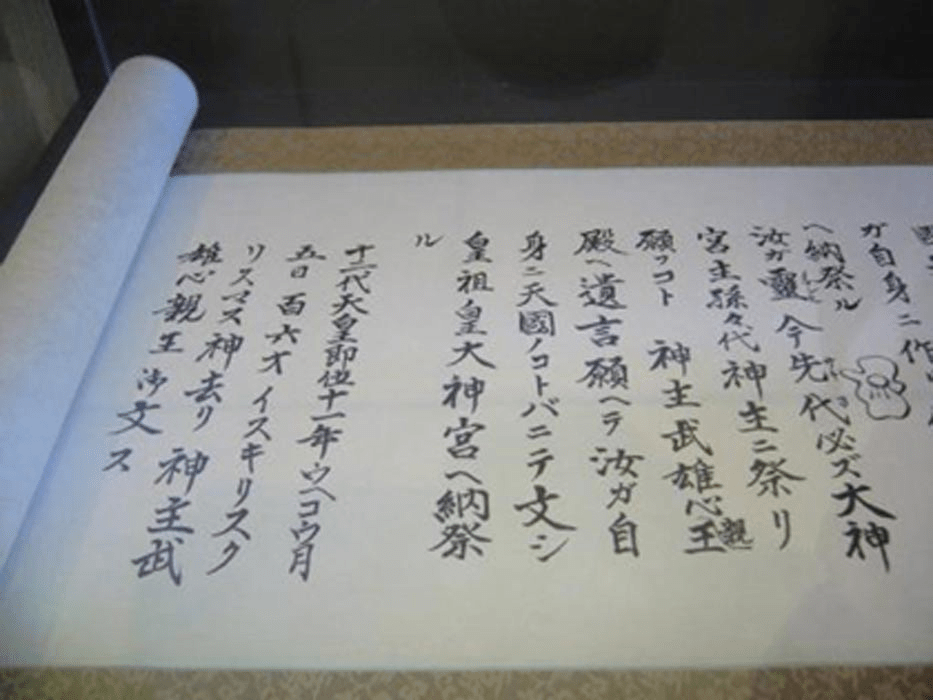 ガ自身ニ作リ
ヘ納祭ル
汝ガ靈今先代必ズ大神
宮主孫々代神主ニ祭リ
願フコト 神主武雄心親王
殿ヘ遺言願ヘテ汝ガ自
身ニ天國ノコトバニテ文シ
皇祖皇大神宮ヘ納祭
ル
十二代天皇即位十一年ウヘコウ月
五日 百六才 イスキリスク
リスマス神去リ 神主武
雄心親王 御文ス